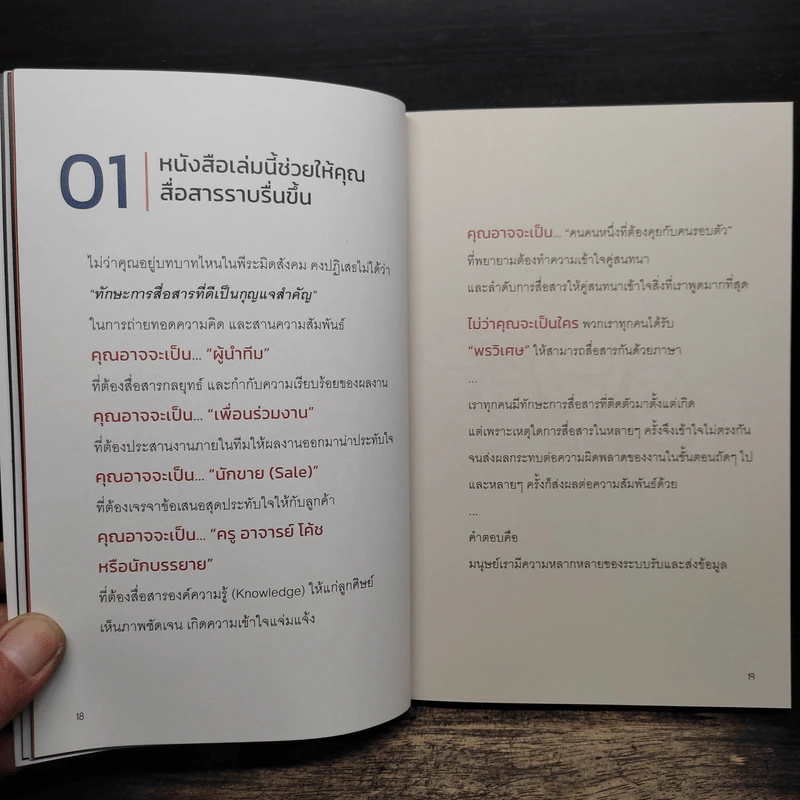 01
หนังสือเล่มนี้ช่วยให้คุณ
สื่อสารราบรื่นขึ้น
ไม่ว่าคุณอยู่บทบาทไหนในพีระมิดสังคม คงปฏิเสธไม่ได้ว่า
“ทักษะการสื่อสารที่ดีเป็นกุญแจสำคัญ”
ในการถ่ายทอดความคิด และสานความสัมพันธ์
คุณอาจจะเป็น... “ผู้นำทีม”
ที่ต้องสื่อสารกลยุทธ์ และกำกับความเรียบร้อยของผลงาน
คุณอาจจะเป็น... “เพื่อนร่วมงาน”
ที่ต้องประสานงานภายในทีมให้ผลงานออกมาน่าประทับใจ
คุณอาจจะเป็น... “นักขาย (Sale)”
ที่ต้องเจรจาข้อเสนอสุดประทับใจให้กับลูกค้า
คุณอาจจะเป็น... “ครู อาจารย์ โค้ช
หรือนักบรรยาย”
ที่ต้องสื่อสารองค์ความรู้ (Knowledge) ให้แก่ลูกศิษย์
เห็นภาพชัดเจน เกิดความเข้าใจแจ่มแจ้ง
18
คุณอาจจะเป็น... “คนคนหนึ่งที่ต้องคุยกับคนรอบตัว”
ที่พยายามต้องทำความเข้าใจคู่สนทนา
และลำดับการสื่อสารให้คู่สนทนาเข้าใจสิ่งที่เราพูดมากที่สุด
ไม่ว่าคุณจะเป็นใคร พวกเราทุกคนได้รับ
“พรวิเศษ” ให้สามารถสื่อสารกันด้วยภาษา
...
เราทุกคนมีทักษะการสื่อสารที่ติดตัวมาตั้งแต่เกิด
แต่เพราะเหตุใดการสื่อสารในหลายๆ ครั้งจึงเข้าใจไม่ตรงกัน
จนส่งผลกระทบต่อความผิดพลาดของงานในขั้นตอนถัดๆ ไป
และหลายๆ ครั้งก็ส่งผลต่อความสัมพันธ์ด้วย
...
คำตอบคือ
มนุษย์เรามีความหลากหลายของระบบรับและส่งข้อมูล
19